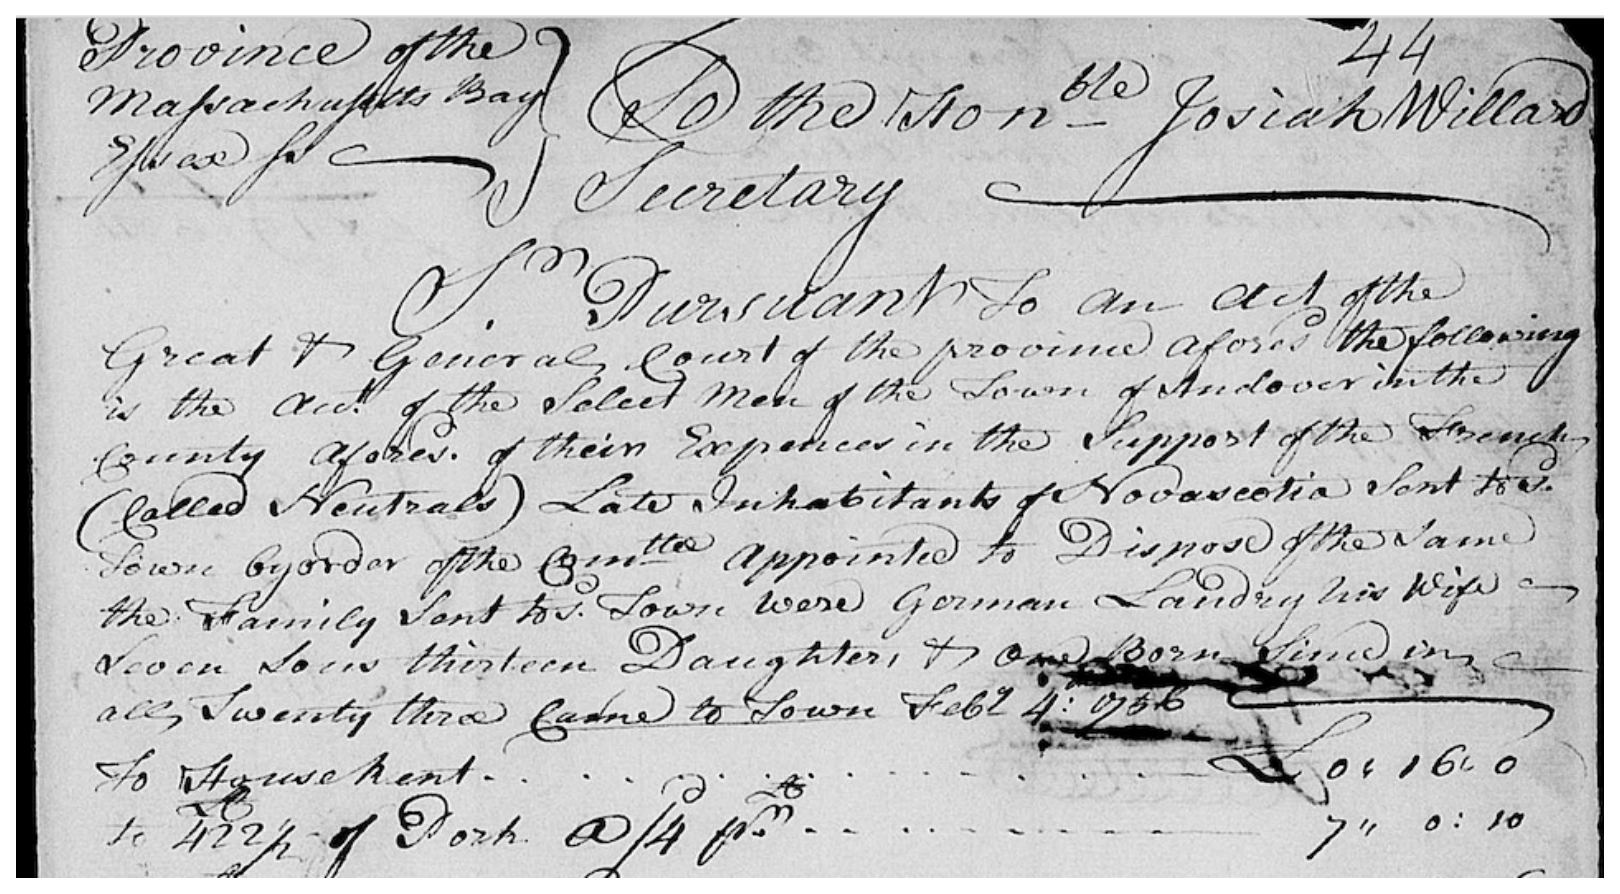 44
Province of the
Massachusetts Bay
Essex ss
To the Honble Josiah Willard
Secretary
Sr. Pursuant To an Act of the
Great & General Court of the province afores.d the following
is the Acct. of the Select Men of the Town of Andover in the
County afores.d of their Expences in the Support of the French
(Called Neutrals) Late Inhabitants of Novascotia Sent to sd.
Town by order of the Comttee Appointed to Dispose of the Same
the Family Sent to sd. Town were German Landry his Wife
Seven Sons thirteen Daughters & one Born Since in
all Twenty three Came to Town Feby 4: 1756
To House Rent £ 0" 16" 0
to 422½ lb of Pork @ /4 pr lb 7" 0: 10